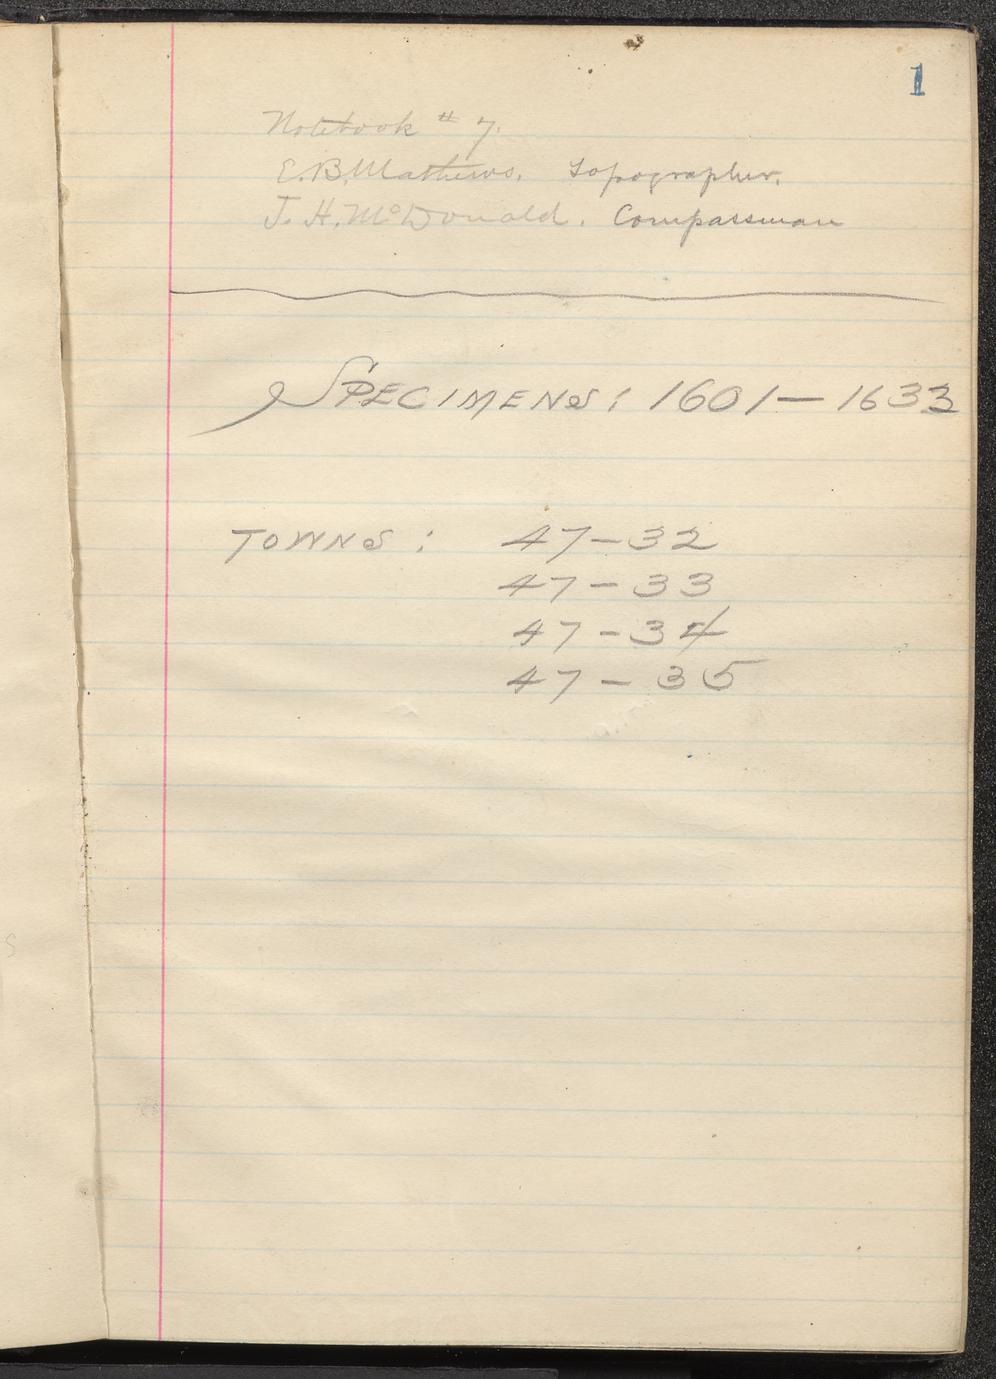 1
Notebook # 7.
E. B. Mathews. Topographer.
J. H. McDonald. Compassman
SPECIMENS: 1601 — 1633
TOWNS: 47 — 32
47 — 33
47 — 34
47 — 35